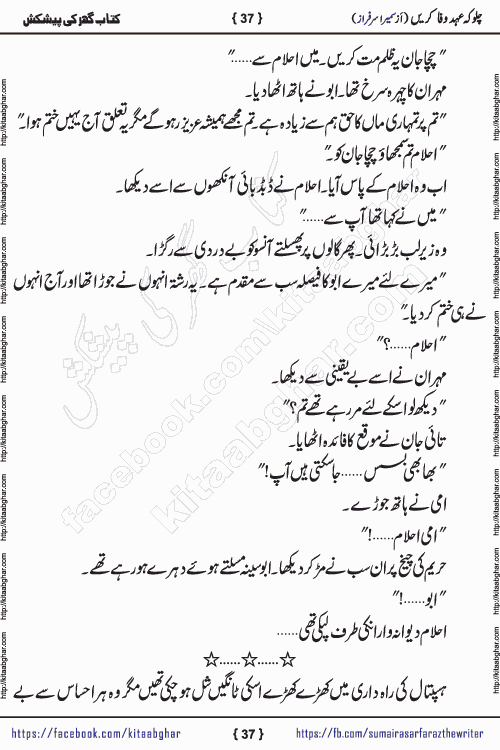 چلو کہ عہدِ وفا کریں (از سمیرا سرفراز)
{ 37 }
کتاب گھر کی پیشکش
"چچا جان یہ ظلم مت کریں۔ میں احلام سے......"
مہران کا چہرہ سرخ تھا۔ ابو نے ہاتھ اٹھا دیا۔
"تم پر تمہاری ماں کا حق ہم سے زیادہ ہے۔ تم مجھے ہمیشہ عزیز رہو گے مگر یہ تعلق آج یہیں ختم ہوا۔"
"احلام تم سمجھاؤ چچا جان کو۔"
اب وہ احلام کے پاس آیا۔ احلام نے ڈبڈبائی آنکھوں سے اسے دیکھا۔
"میں نے کہا تھا آپ سے......"
وہ زیرلب بڑبڑائی۔ پھر گالوں پر پھسلتے آنسو کو بے دردی سے رگڑا۔
"میرے لئے میرے ابو کا فیصلہ سب سے مقدم ہے۔ یہ رشتہ انہوں نے جوڑا تھا اور آج انہوں
نے ہی ختم کر دیا۔"
"احلام......؟"
مہران نے اسے بے یقینی سے دیکھا۔
"دیکھ لو اسکے لئے مر رہے تھے تم؟"
تائی جان نے موقع کا فائدہ اٹھایا۔
"بھابھی بسس...... جا سکتی ہیں آپ!"
امی نے ہاتھ جوڑے۔
"امی احلام......!"
حریم کی چیخ پر ان سب نے مڑ کر دیکھا۔ ابو سینہ مسلتے ہوئے دہرے ہو رہے تھے۔
"ابو......!"
احلام دیوانہ وار انکی طرف لپکی تھی......
☆......☆......☆
ہسپتال کی راہ داری میں کھڑے کھڑے اسکی ٹانگیں شل ہو چکی تھیں مگر وہ ہر احساس سے بے
https://facebook.com/kitaabghar
{ 37 }
https://fb.com/sumairasarfarazthewriter
http://kitaabghar.com
کتاب گھر کی پیشکش
facebook.com/kitaabghar
kitaabghar.com